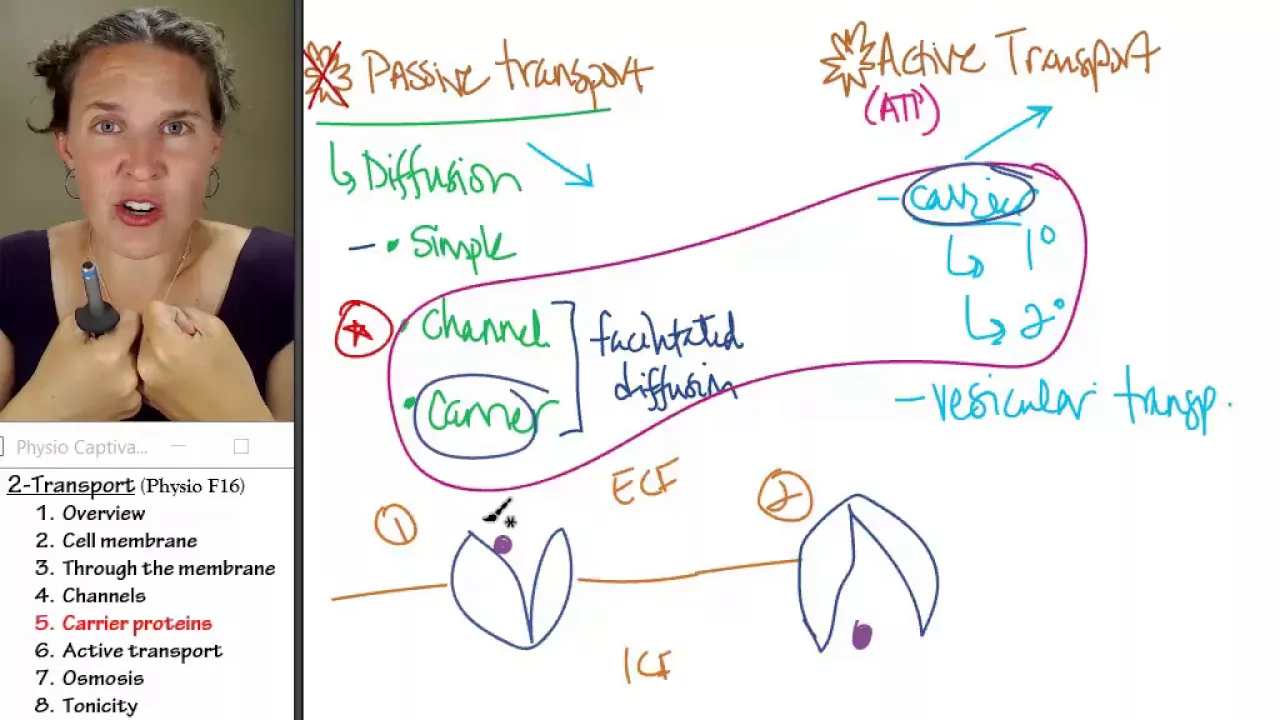 Passive transport
Active Transport
(ATP)
↳ Diffusion
- carrier
- • Simple
↳ 1°
• Channel
facilitated
diffusion
↳ 2°
• Carrier
- vesicular transp.
ECF
1
2
ICF
Physio Captiva...
2-Transport (Physio F16)
1. Overview
2. Cell membrane
3. Through the membrane
4. Channels
5. Carrier proteins
6. Active transport
7. Osmosis
8. Tonicity